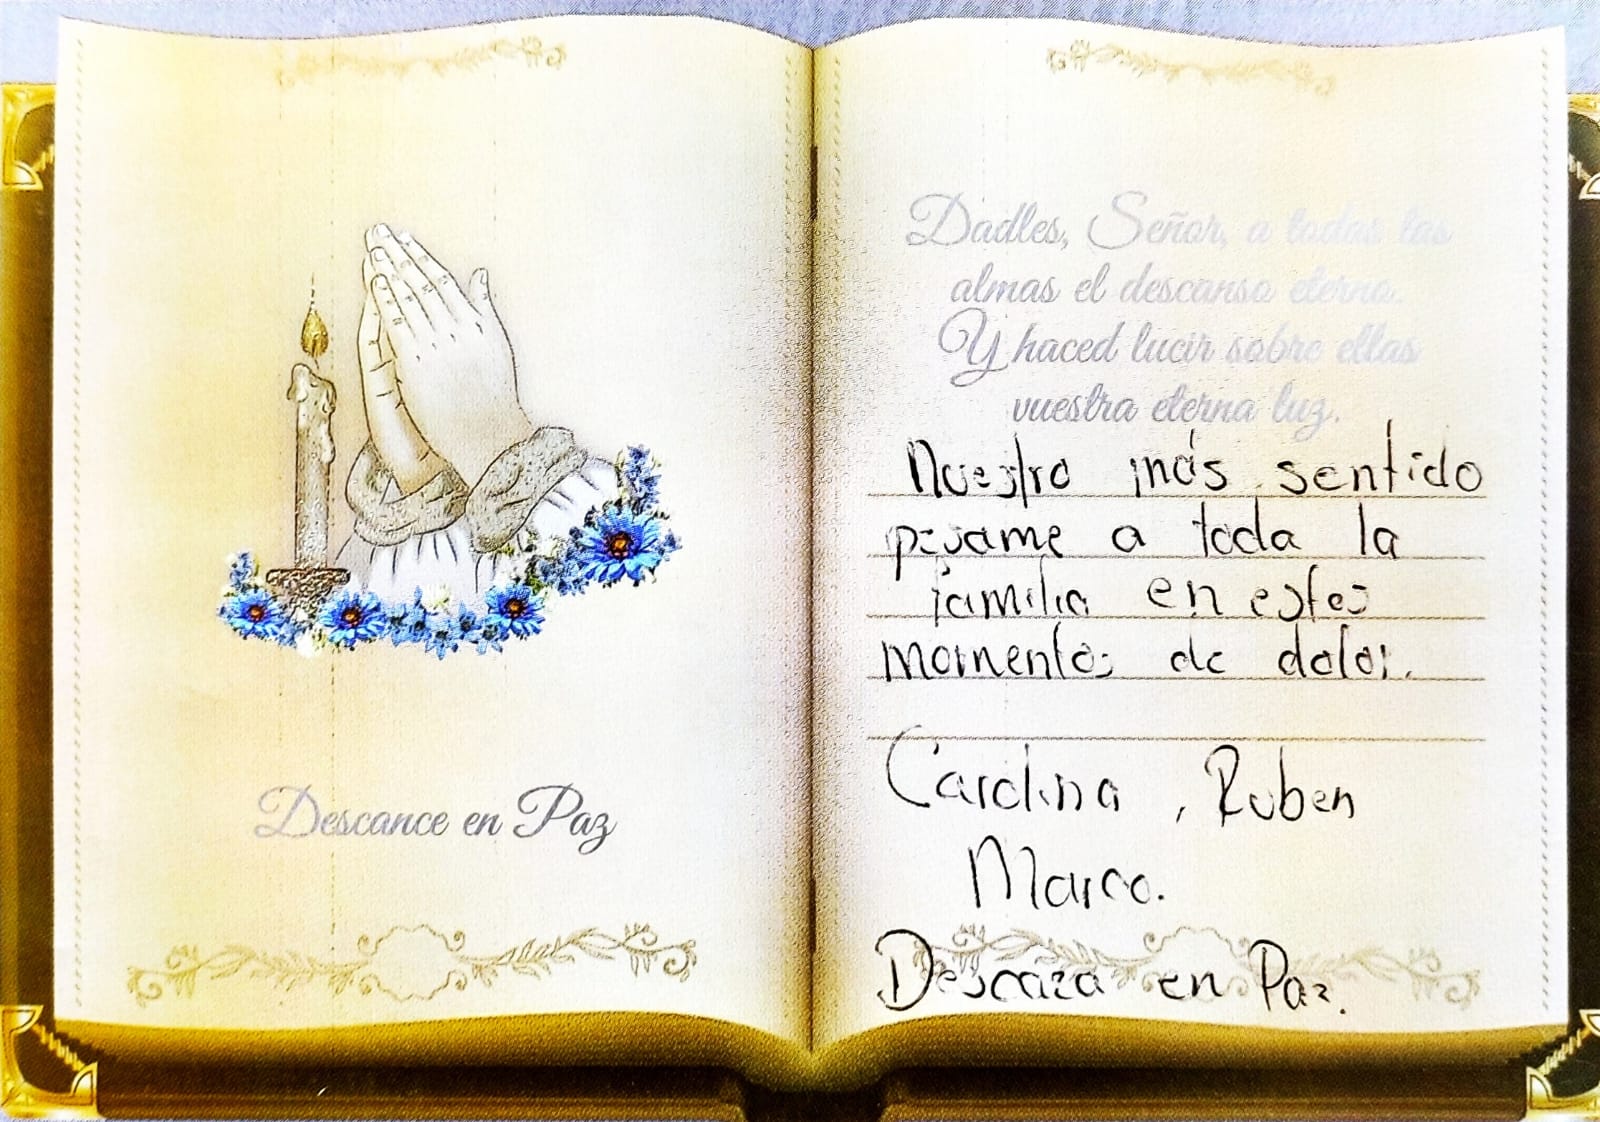 Descance en Paz
Dadles, Señor, a todas las
almas el descanso eterno.
Y haced lucir sobre ellas
vuestra eterna luz.
Nuestro más sentido
pesame a toda la
familia en estos
momentos de dolor.
Carolina, Ruben
Marco.
Descanza en Paz.